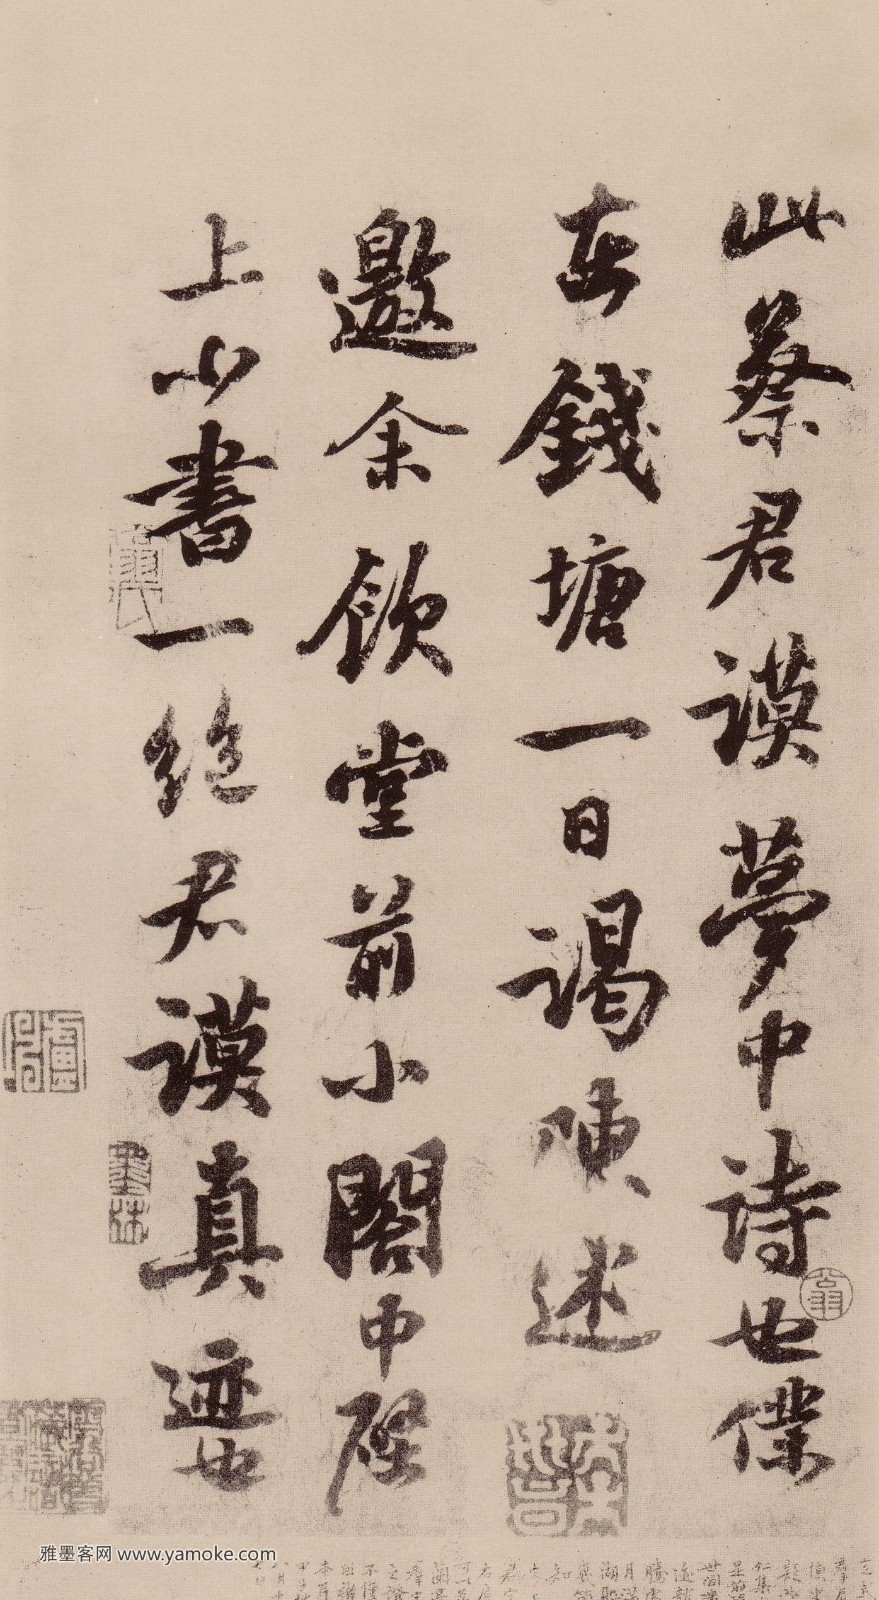 此蔡君謨夢中詩也僕
在錢塘一日謁陳述
邀余飲堂前小閣中壁
上小書一絶君謨真
迹也
雅墨客网 www.yamoke.com